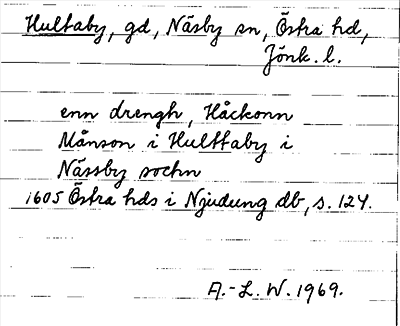 Hultaby, gd, Näsby sn, Östra hd,
Jönk. l.
enn drengh, Håckonn
Månson i Hulttaby i
Nässby sochn
1605 Östra hds i Njudung db, s. 124.
A.-L. W. 1969.